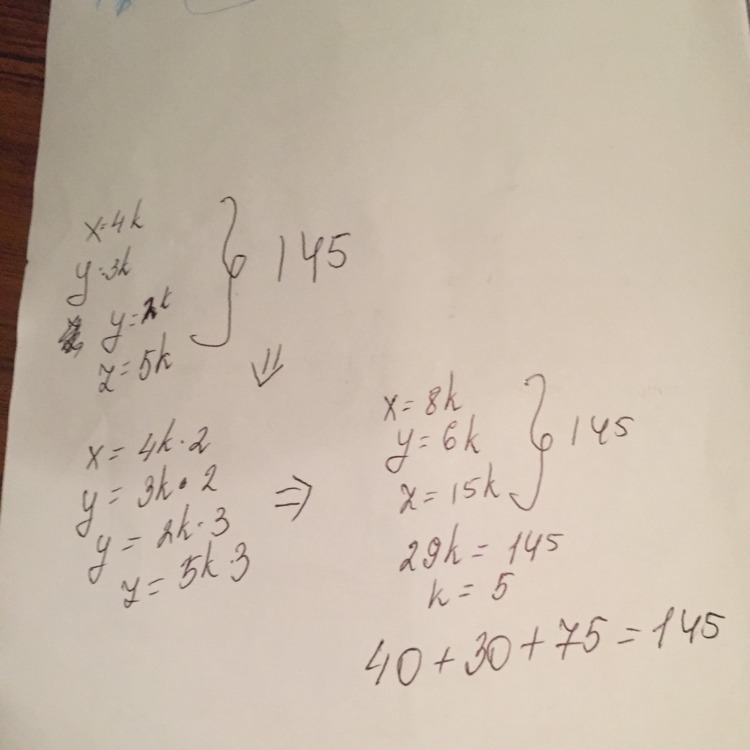 x=4k
y=3k
y=2k
z=5k
} 145
⇓
x = 4k·2
y = 3k·2
y = 2k·3
z = 5k·3
⇒
x = 8k
y = 6k
z = 15k
} 145
29k = 145
k = 5
40 + 30 + 75 = 145